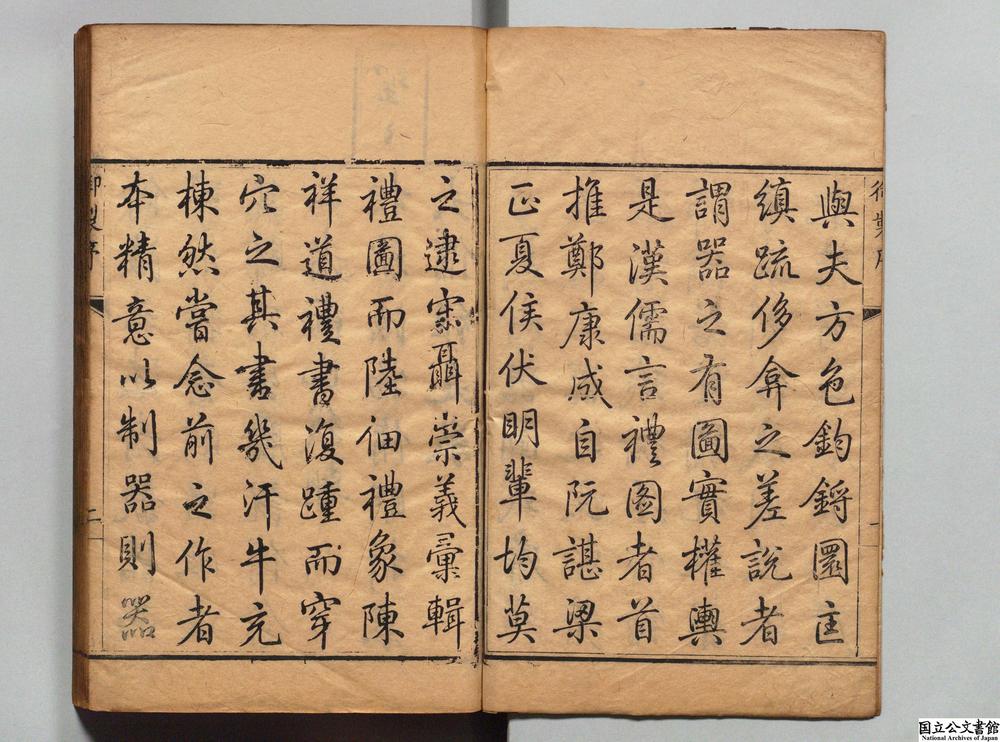 御製序
一
與夫方色鈞鋝圜匡
縝疏侈弇之差說者
謂器之有圖實權輿
是漢儒言禮圖者首
推鄭康成自阮諶梁
正夏侯伏眀輩均莫
之逮宋聶崇義彙輯
禮圖而陸佃禮象陳
祥道禮書復踵而穿
穴之其書幾汗牛充
棟然嘗念前之作者
本精意以制器則器
御製序
二
国立公文書館
National Archives of Japan